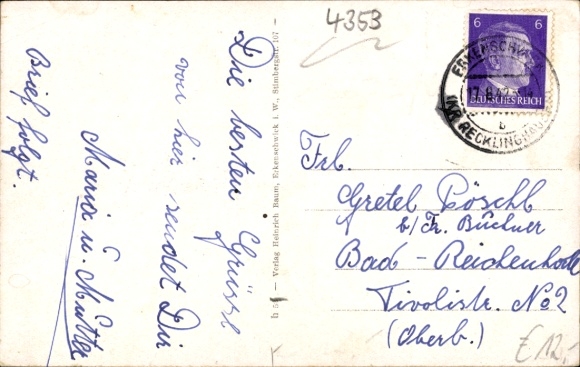 4353
Die besten Grüsse
von hier sendet Dir
Maria u. Mutter
Brief folgt.
Verlag Heinrich Baum, Erkenschwick i. W., Stimbergstr. 107
6 6
DEUTSCHES REICH
ERKENSCHWICK
17.8.42
b
(KR. RECKLINGHAUSEN)
Frl.
Gretel Pöschl
b/Fr. Büchner
Bad - Reichenhall
Tivolistr. No 2
(Oberb.)
£ 12,-